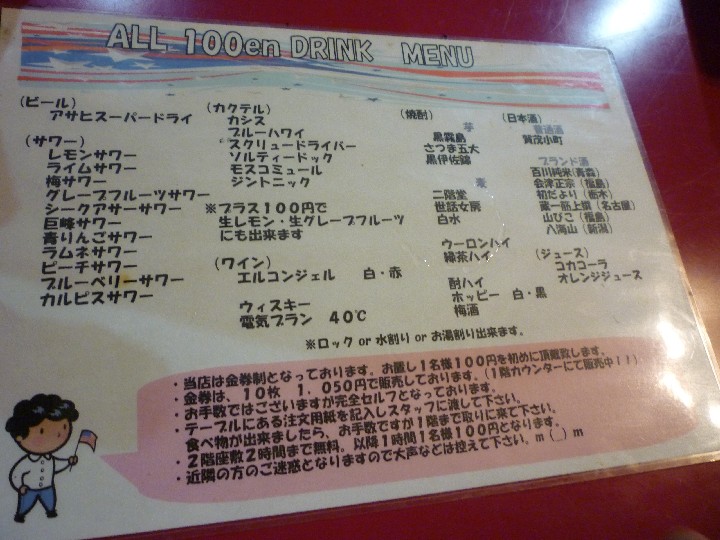 ALL 100en DRINK MENU
(ビール)
アサヒスーパードライ
(サワー)
レモンサワー
ライムサワー
梅サワー
グレープフルーツサワー
シークアサーサワー
巨峰サワー
青りんごサワー
ラムネサワー
ピーチサワー
ブルーベリーサワー
カルピスサワー
(カクテル)
カシス
ブルーハワイ
スクリュードライバー
ソルティードック
モスコミュール
ジントニック
※プラス100円で
生レモン・生グレープフルーツ
にも出来ます
(ワイン)
エルコンジェル 白・赤
ウィスキー
電気ブラン 40℃
(焼酎)
芋
黒霧島
さつま五大
黒伊佐錦
麦
二階堂
世話女房
白水
ウーロンハイ
緑茶ハイ
酎ハイ
ホッピー 白・黒
梅酒
(日本酒)
普通酒
賀茂小町
ブランド酒
百川純米(青森)
会津正宗(福島)
初だより(栃木)
蔵一筋上撰(名古屋)
山びこ(福島)
八海山(新潟)
(ジュース)
コカコーラ
オレンジジュース
※ロック or 水割り or お湯割り出来ます。
・当店は金券制となっております。お通し1名様100円を初めに頂戴致します。
・金券は、10枚 1,050円で販売しております。(1階カウンターにて販売中!!)
・お手数ではございますが完全セルフとなっております。
・テーブルにある注文用紙を記入しスタッフに渡して下さい。
食べ物が出来ましたら、お手数ですが1階まで取りに来て下さい。
・2階座敷2時間まで無料。以降1時間1名様100円となります。
・近隣の方のご迷惑となりますので大声などは控えて下さい。m(_)m